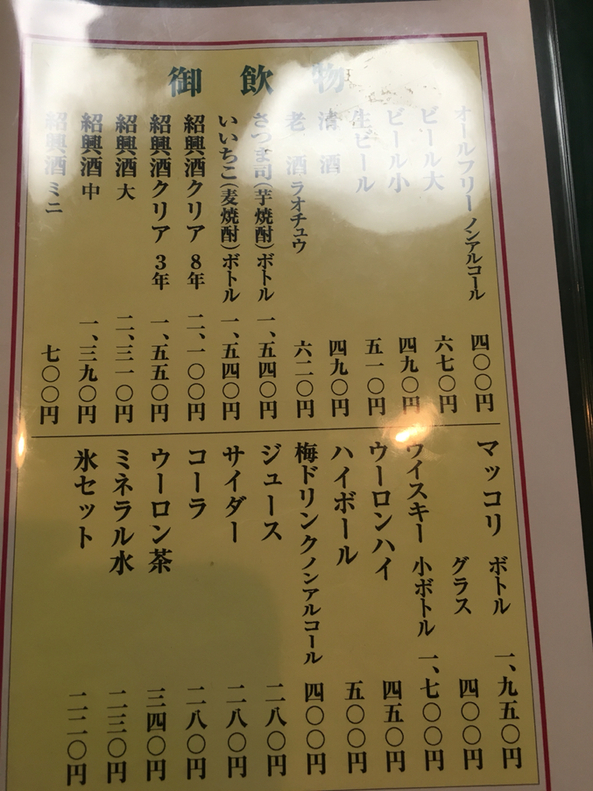 御飲物
オールフリー ノンアルコール 四〇〇円
ビール大 六七〇円
ビール小 四九〇円
生ビール 五一〇円
清酒 四九〇円
老酒 ラオチュウ 六二〇円
さつま司(芋焼酎)ボトル 一、五四〇円
いいちこ(麦焼酎)ボトル 一、五四〇円
紹興酒クリア 8年 二、一〇〇円
紹興酒クリア 3年 一、五五〇円
紹興酒 大 二、三一〇円
紹興酒 中 一、三九〇円
紹興酒 ミニ 七〇〇円
マッコリ ボトル 一、九五〇円
グラス 四〇〇円
ウイスキー 小ボトル 一、七〇〇円
ウーロンハイ 四五〇円
ハイボール 五〇〇円
梅ドリンク ノンアルコール 四〇〇円
ジュース 二八〇円
サイダー 二八〇円
コーラ 二八〇円
ウーロン茶 三四〇円
ミネラル水 二三〇円
氷セット 二二〇円